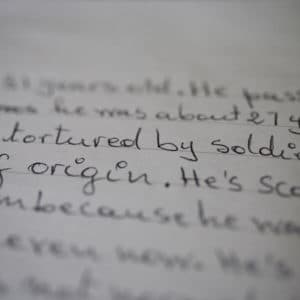 years old. He pas
he was about 21 y
tortured by soldi
f origin. He's sca
because he wa
even now. He's